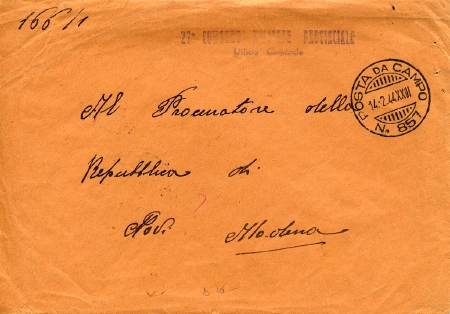 166/1
27° COMANDO MILITARE PROVINCIALE
Ufficio Comando
POSTA DA CAMPO
14.2.44XXII
N. 857
Al Procuratore della
Repubblica di
Modena